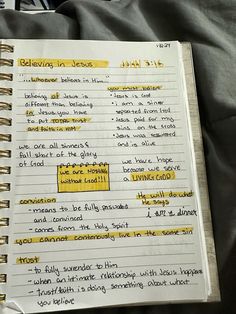 Believing in Jesus
"...whoever believes in Him..."
believing of Jesus is
different than believing
in Jesus. you have
to put TOTAL trust
and faith in HIM
you must believe
• Jesus is God
• I am a sinner
separated from God
• Jesus paid for my
sins on the cross
• Jesus was resurrected
and is alive
we are all sinners &
fall short of the glory
of God
we are NOTHING
without God!!!
we have hope
because we serve
a LIVING GOD
conviction
- means to be fully persuaded
and convinced
- comes from the Holy Spirit
He will do what
He says
you cannot continously live in the same sin
trust
- to fully surrender to Him
- when an intimate relationship with Jesus happens
- trust/faith is doing something about what
you believe